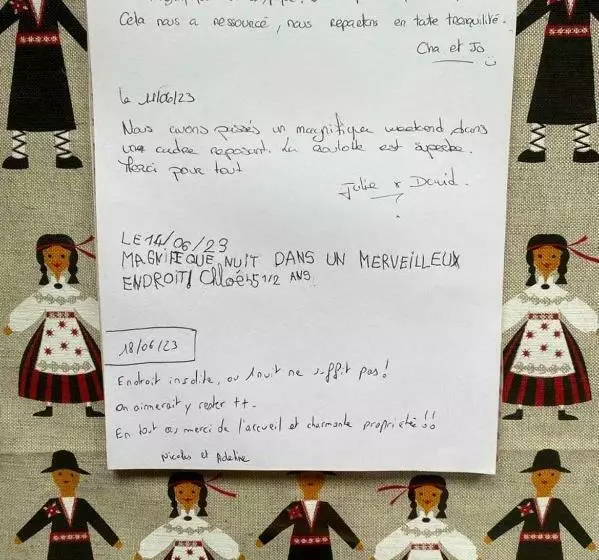 Cela nous a ressourcé, nous repartons en toute tranquilité.
Cha et Jo
le 11/06/23
Nous avons passés un magnifique weekend dans
une cadre reposant. La roulotte est superbe.
Merci pour tout
Julie & David.
LE 14/06/23
MAGNIFEQUE NUIT DANS UN MERVEILLEUX
ENDROIT! Chloé 5 1/2 ANS
18/06/23
Endroit insolite, où 1 nuit ne suffit pas!
on aimerait y rester ++.
En tout cas merci de l'accueil et charmante propriété!!
Nicolas et Adeline